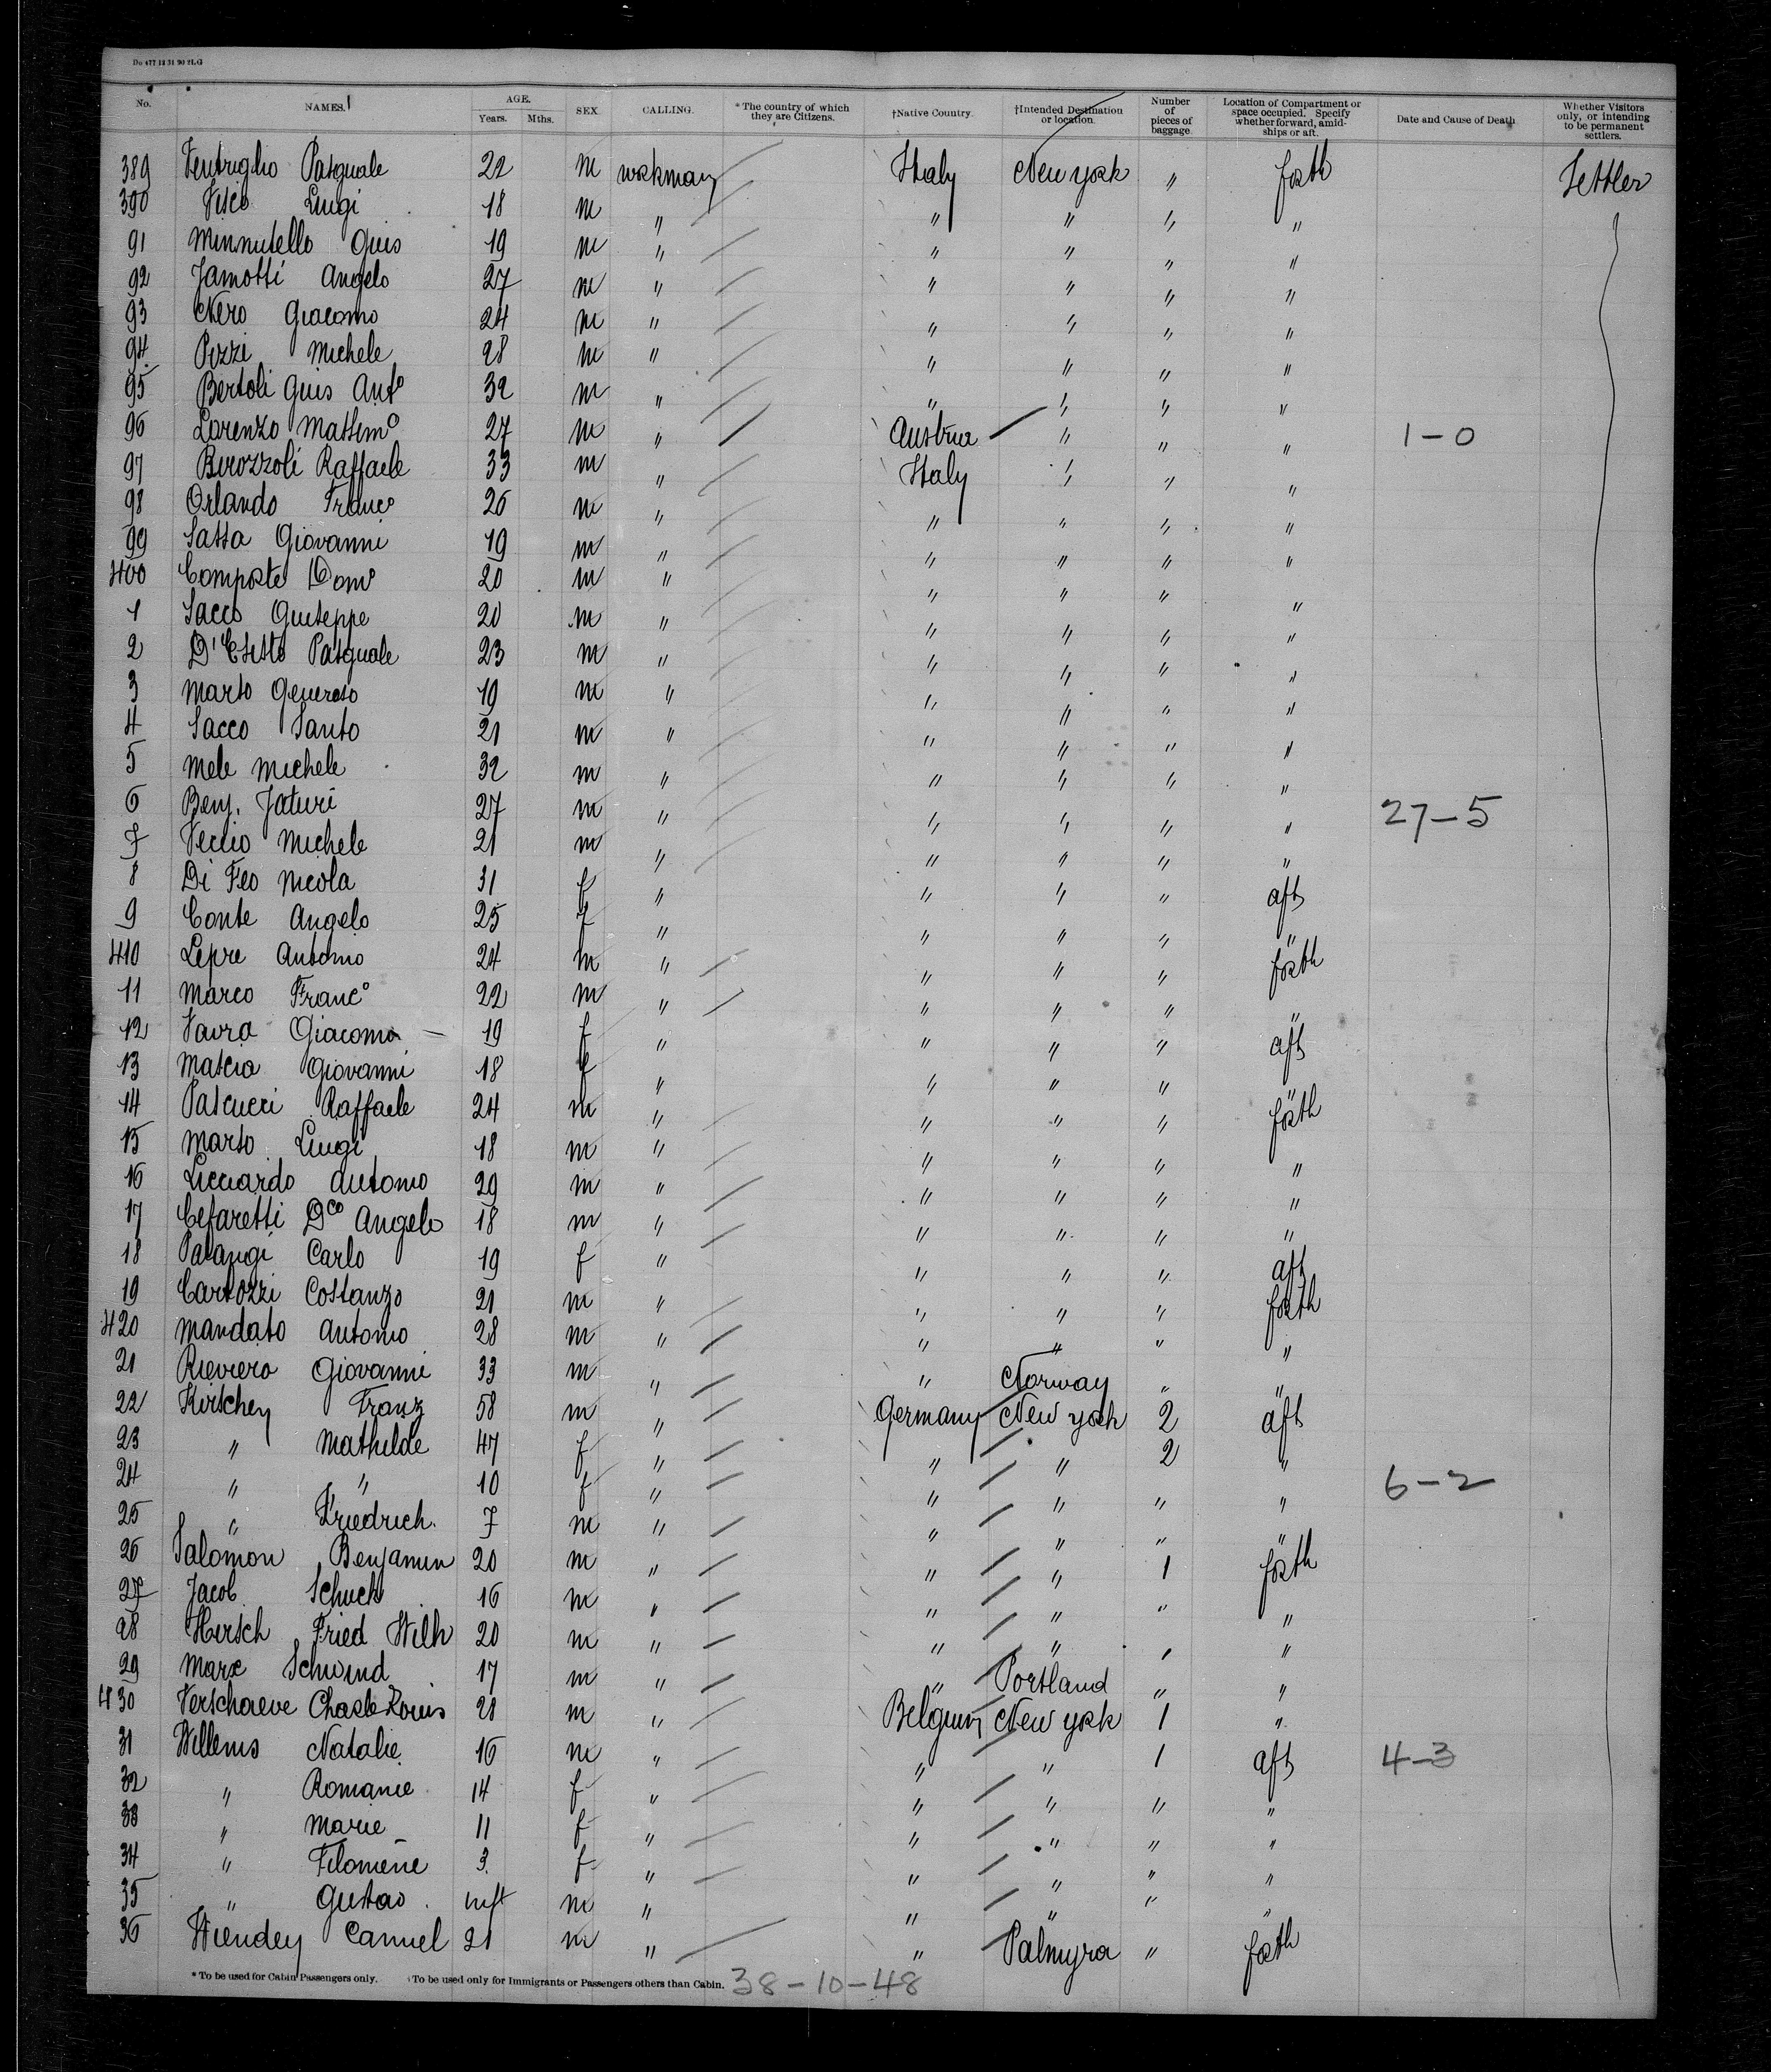 Do 477 12 31 90 2L.G
No. NAMES. AGE. Years. Mths. SEX CALLING. *The country of which they are Citizens. †Native Country. †Intended Destination or location. Number of pieces of baggage Location of Compartment or space occupied. Specify whether forward, amidships or aft. Date and Cause of Death Whether Visitors only, or intending to be permanent settlers.
389 Pasquale 22 m workman Italy New york " forth Settler
390 Visco Luigi 18 m " " " " "
91 Minnutello Guis 19 m " " " " "
92 Jamotti Angelo 27 m " " " " "
93 Nero Giacomo 24 m " " " " "
94 Pozzi Michele 28 m " " " " "
95 Bertoli Guis Anto 32 m " " " " "
96 Lorenzo Massimo 27 m " Austria " " " 1-0
97 Raffaele 33 m " Italy " " "
98 Orlando Franco 26 m " " " " "
99 Sassa Giovanni 19 m " " " " "
400 Composte Domo 20 m " " " " "
1 Sacco Guiseppe 20 m " " " " "
2 D'Esisto Pasquale 23 m " " " " "
3 Marso Generoso 19 m " " " " "
4 Sacco Santo 21 m " " " " "
5 Mele Michele 32 m " " " " "
6 Benj. Jaturi 27 m " " " " " 27-5
7 Veccio Michele 21 m " " " " "
8 Di Feo Nicola 31 f " " " " aft
9 Conte Angelo 25 f " " " " "
410 Lepre Antonio 24 m " " " " forth
11 Marco Franco 22 m " " " " "
12 Giacomo 19 f " " " " aft
13 Mascia Giovanni 18 f " " " " "
14 Pascucci Raffaele 24 m " " " " forth
15 Marso Luigi 18 m " " " " "
16 Licciardo Antonio 29 m " " " " "
17 Cesaretti Dco Angelo 18 m " " " " "
18 Palangi Carlo 19 f " " " " aft
19 Cartozzi Costanzo 21 m " " " " forth
420 Mandato Antonio 28 m " " " " "
21 Rieviero Giovanni 33 m " " Norway " "
22 Kirschey Franz 58 m " Germany New york 2 aft
23 " Mathilde 47 f " " " 2 "
24 " " 10 f " " " " " 6-2
25 " Friedrich. 7 m " " " " "
26 Salomon Benjamin 20 m " " " 1 forth
27 Jacob Schuck 16 m " " " " "
28 Hirsch Fried Wilh 20 m " " " 1 "
29 Marx Schwind 17 m " " Portland " "
430 Verschaeve Charle Louis 28 m " Belgium New york 1 "
31 Willems Natalie 16 m " " " 1 aft 4-3
32 " Romanie 14 f " " " " "
33 " Marie 11 f " " " " "
34 " Filomene 3 f " " " " "
35 " Gustav inft m " " " " "
36 Camiel 21 m " " Palmyra " forth
*To be used for Cabin Passengers only. †To be used only for Immigrants or Passengers others than Cabin. 38-10-48